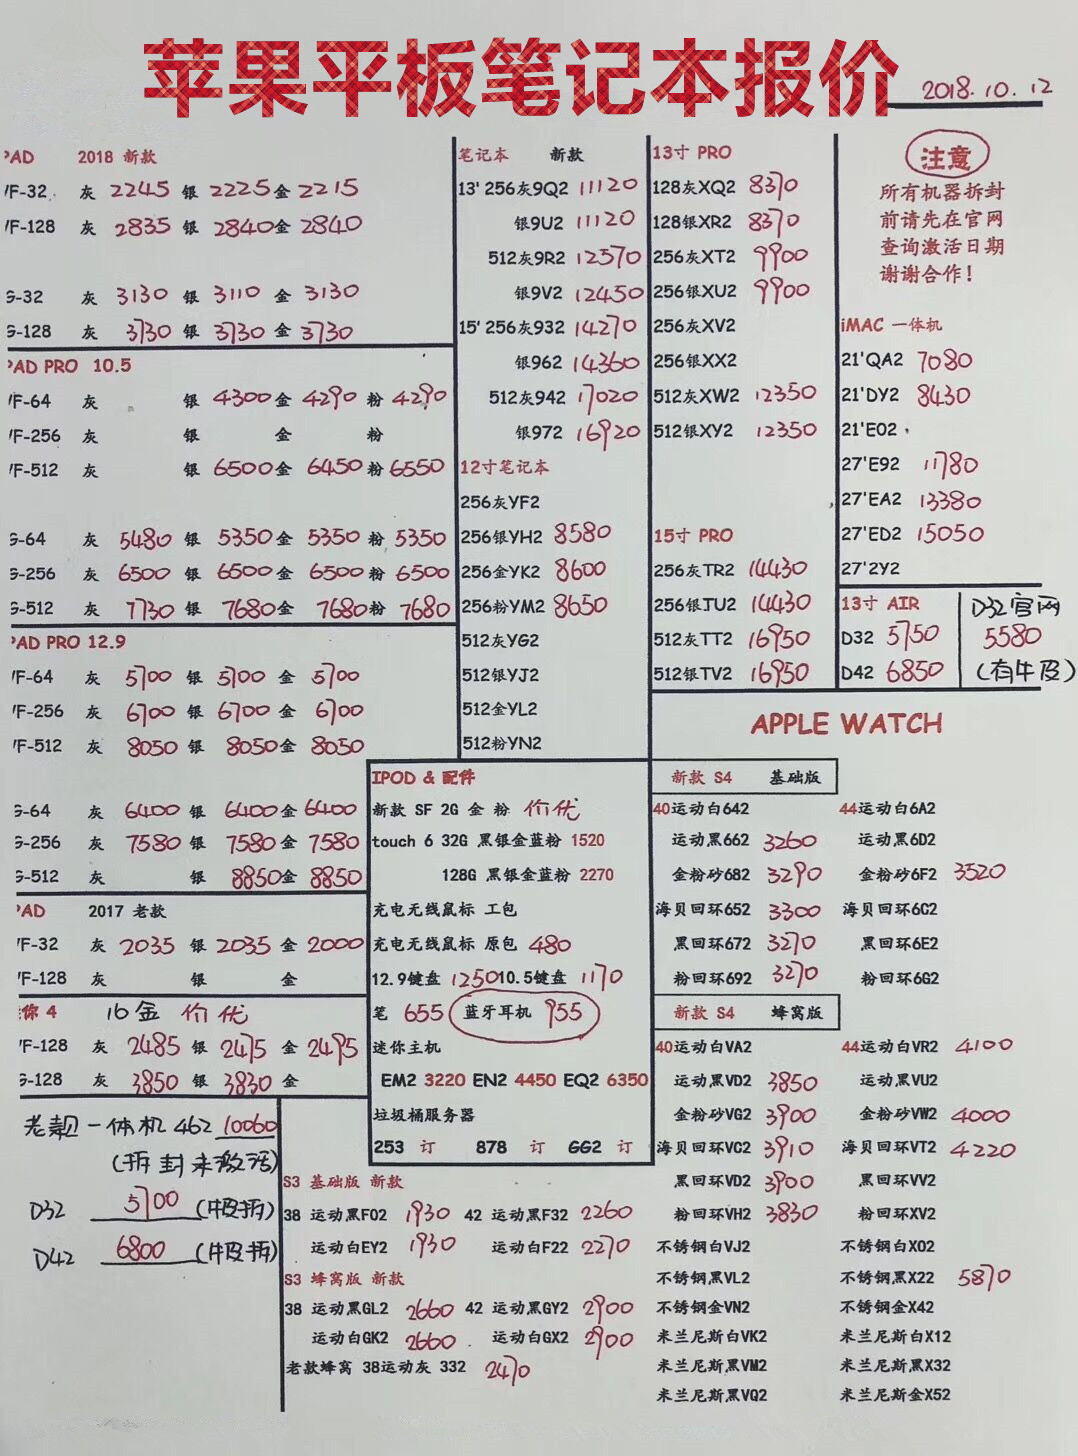 苹果平板笔记本报价
2018.10.12
PAD 2018 新款
/F-32 灰 2245 银 2225 金 2215
/F-128 灰 2835 银 2840 金 2840
G-32 灰 3130 银 3110 金 3130
G-128 灰 3730 银 3730 金 3730
PAD PRO 10.5
/F-64 灰 银 4300 金 4290 粉 4290
/F-256 灰 银 金 粉
/F-512 灰 银 6500 金 6450 粉 6550
G-64 灰 5480 银 5350 金 5350 粉 5350
G-256 灰 6500 银 6500 金 6500 粉 6500
G-512 灰 7730 银 7680 金 7680 粉 7680
PAD PRO 12.9
/F-64 灰 5700 银 5700 金 5700
/F-256 灰 6700 银 6700 金 6700
/F-512 灰 8050 银 8050 金 8050
G-64 灰 6400 银 6400 金 6400
G-256 灰 7580 银 7580 金 7580
G-512 灰 银 8850 金 8850
PAD 2017 老款
/F-32 灰 2035 银 2035 金 2000
/F-128 灰 银 金
你 4 16金 价优
/F-128 灰 2485 银 2475 金 2495
G-128 灰 3850 银 3830 金
老靓一体机 462 10060
(拆封未激活)
D32 5700 (牛皮拆)
D42 6800 (牛皮拆)
笔记本 新款
13' 256灰9Q2 11120
银9U2 11120
512灰9R2 12570
银9V2 12450
15' 256灰932 14270
银962 14360
512灰942 17020
银972 16920
12寸笔记本
256灰YF2
256银YH2 8580
256金YK2 8600
256粉YM2 8650
512灰YG2
512银YJ2
512金YL2
512粉YN2
13寸 PRO
128灰XQ2 8370
128银XR2 8370
256灰XT2 9900
256银XU2 9900
256灰XV2
256银XX2
512灰XW2 12350
512银XY2 12350
15寸 PRO
256灰TR2 14430
256银TU2 14430
512灰TT2 16950
512银TV2 16950
注意
所有机器拆封
前请先在官网
查询激活日期
谢谢合作!
iMAC 一体机
21'QA2 7080
21'DY2 8430
21'E02
27'E92 11780
27'EA2 13380
27'ED2 15050
27'2Y2
13寸 AIR
D32 5750
D42 6850
D32官网
5580
(有牛皮)
IPOD & 配件
新款 SF 2G 金 粉 价优
touch 6 32G 黑银金蓝粉 1520
128G 黑银金蓝粉 2270
充电无线鼠标 工包
充电无线鼠标 原包 480
12.9键盘 1250 10.5键盘 1170
笔 655 蓝牙耳机 955
迷你主机
EM2 3220 EN2 4450 EQ2 6350
垃圾桶服务器
253 订 878 订 GG2 订
S3 基础版 新款
38 运动黑F02 1930 42 运动黑F32 2260
运动白EY2 1930 运动白F22 2270
S3 蜂窝版 新款
38 运动黑GL2 2660 42 运动黑GY2 2900
运动白GK2 2660 运动白GX2 2900
老款蜂窝 38运动灰 332 2470
APPLE WATCH
新款 S4 基础版
40运动白642 44运动白6A2
运动黑662 3260 运动黑6D2
金粉砂682 3290 金粉砂6F2 3520
海贝回环652 3300 海贝回环6G2
黑回环672 3270 黑回环6E2
粉回环692 3270 粉回环6G2
新款 S4 蜂窝版
40运动白VA2 44运动白VR2 4100
运动黑VD2 3850 运动黑VU2
金粉砂VG2 3900 金粉砂VW2 4000
海贝回环VC2 3910 海贝回环VT2 4220
黑回环VD2 3900 黑回环VV2
粉回环VH2 3830 粉回环XV2
不锈钢白VJ2 不锈钢白X02
不锈钢黑VL2 不锈钢黑X22 5870
不锈钢金VN2 不锈钢金X42
米兰尼斯白VK2 米兰尼斯白X12
米兰尼斯黑VM2 米兰尼斯黑X32
米兰尼斯黑VQ2 米兰尼斯金X52